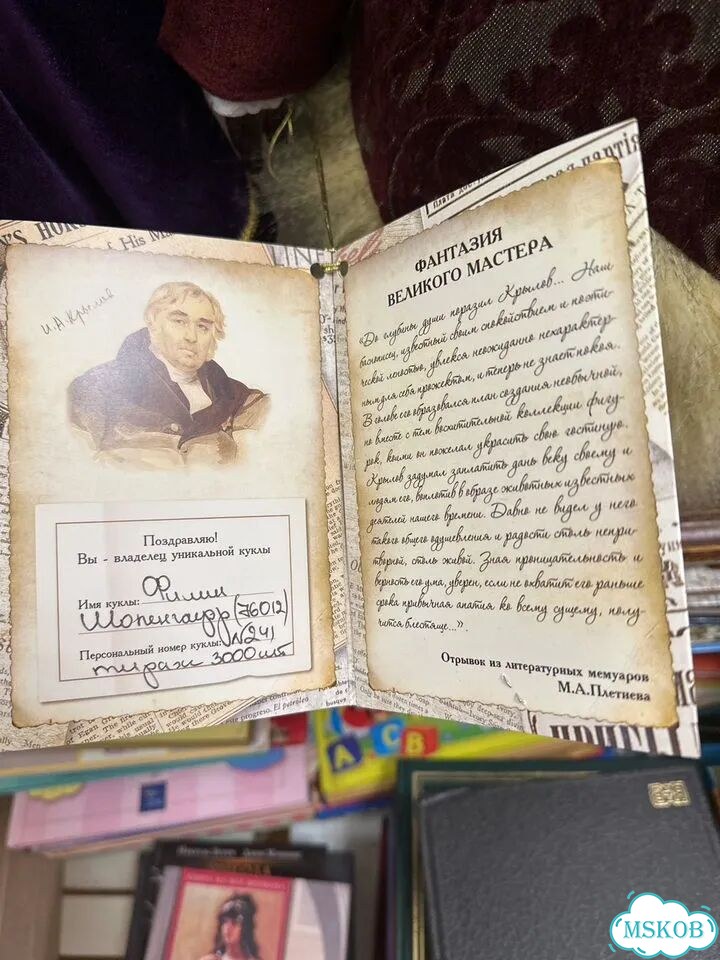 И.А.Крылов
Поздравляю!
Вы - владелец уникальной куклы
Имя куклы: Филин
Шопенгауэр (76012)
Персональный номер куклы: №241
тираж 3000шт
ФАНТАЗИЯ
ВЕЛИКОГО МАСТЕРА
«До глубины души поразил Крылов... Наш
баснописец, известный своим спокойствием и поэти-
ческой леностью, увлекся неожиданно нехарактер-
ным для себя прожектом, и теперь не знает покоя.
В голове его образовался план создания необычной,
но вместе с тем восхитительной коллекции фигу-
рок, коими он пожелал украсить свою гостиную.
Крылов задумал заплатить дань веку своему и
людям его, воплотив в образе животных известных
деятелей нашего времени. Давно не видел у него
такого общего одушевления и радости столь непри-
творной, столь живой. Зная проницательность и
верность его ума, уверен, если не охватит его раньше
срока привычная апатия ко всему сущему, полу-
чится блестяще...».
Отрывок из литературных мемуаров
М.А.Плетнева
His
A C B
MSKOB